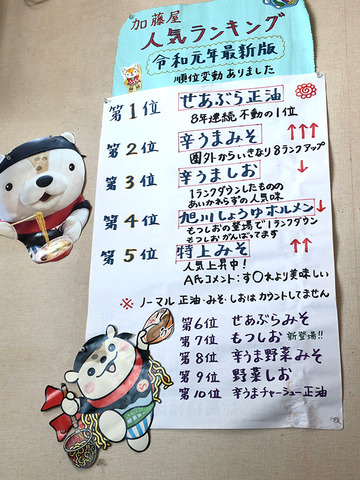 加藤屋
人気ランキング
令和元年最新版
順位変動ありました
第1位 せあぶら正油
8年連続 不動の1位
第2位 辛うまみそ ↑↑↑
圏外からいきなり8ランクアップ
第3位 辛うましお ↓
1ランクダウンしたものの
あいかわらずの人気味
第4位 旭川しょうゆホルメン ↓
もつしおの登場で1ランクダウン
もつしおがんばってます
第5位 特上みそ ↑↑
人気上昇中!
A氏コメント:す〇れより美味しい
※ ノーマル 正油・みそ・しおはカウントしてません
第6位 せあぶらみそ
第7位 もつしお 新登場!!
第8位 辛うま野菜みそ
第9位 野菜しお
第10位 辛うまチャーシュー正油